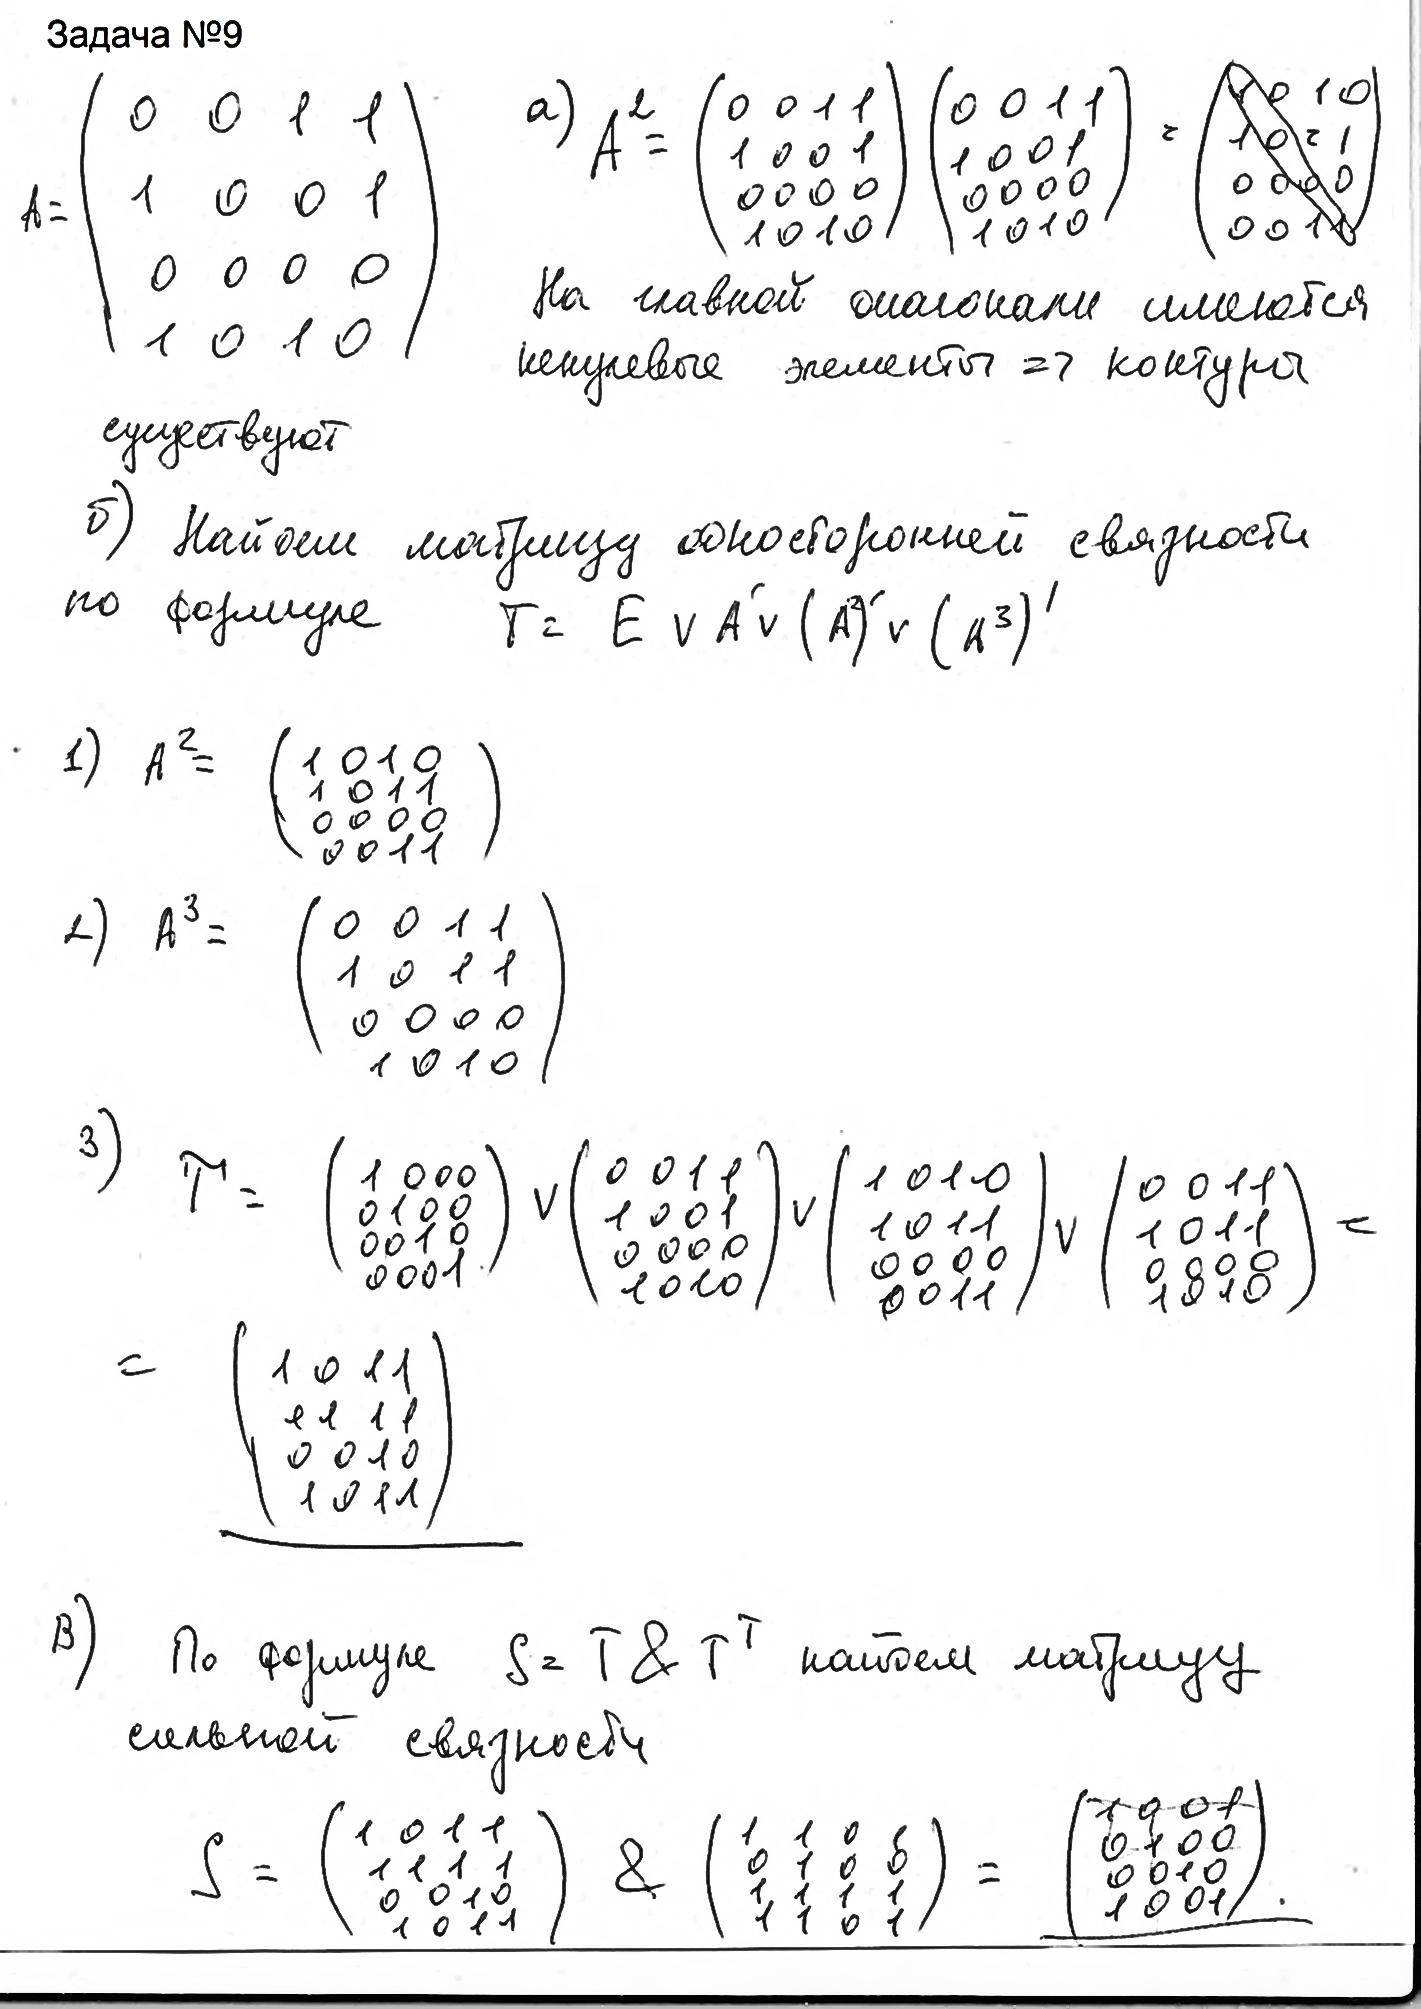 Задача №9
A = (0 0 1 1
1 0 0 1
0 0 0 0
1 0 1 0)
а) A² = (0 0 1 1
1 0 0 1
0 0 0 0
1 0 1 0) (0 0 1 1
1 0 0 1
0 0 0 0
1 0 1 0) = (1 0 1 0
1 0 2 1
0 0 0 0
0 0 1 1)
На главной диагонали имеются
ненулевые элементы => контуры
существуют
б) Найдем матрицу односторонней связности
по формуле T = E ∨ A' ∨ (A²)' ∨ (A³)'
1) A² = (1 0 1 0
1 0 1 1
0 0 0 0
0 0 1 1)
2) A³ = (0 0 1 1
1 0 1 1
0 0 0 0
1 0 1 0)
3) T = (1 0 0 0
0 1 0 0
0 0 1 0
0 0 0 1) ∨ (0 0 1 1
1 0 0 1
0 0 0 0
1 0 1 0) ∨ (1 0 1 0
1 0 1 1
0 0 0 0
0 0 1 1) ∨ (0 0 1 1
1 0 1 1
0 0 0 0
1 0 1 0) =
= (1 0 1 1
1 1 1 1
0 0 1 0
1 0 1 1)
В) По формуле S = T & Tᵀ найдем матрицу
сильной связности
S = (1 0 1 1
1 1 1 1
0 0 1 0
1 0 1 1) & (1 1 0 1
0 1 0 0
1 1 1 1
1 1 0 1) = (1 0 0 1
0 1 0 0
0 0 1 0
1 0 0 1).